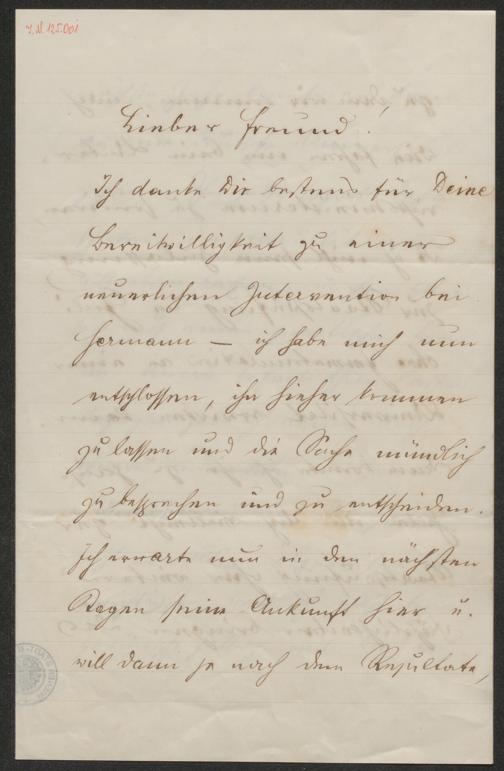 I.N. 125.001
Lieber Freund!
Ich danke Dir bestens für Deine
Bereitwilligkeit zu einer
neuerlichen Intervention bei
Hermann – ich habe mich nun
entschlossen, ihn hieher kommen
zu lassen und die Sache mündlich
zu besprechen und zu entscheiden.
Ich erwarte nun in den nächsten
Tagen seine Ankunft hier u.
will dann je nach dem Resultate,